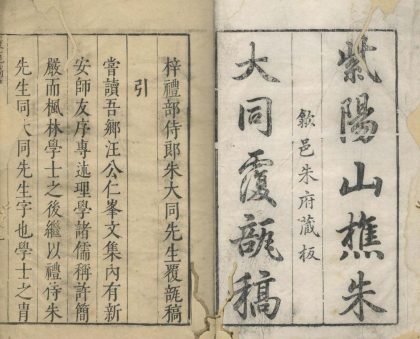 紫陽山樵朱
歙邑朱府藏板
大同覆瓿稿
梓禮部侍郎朱大同先生覆瓿稿
引
嘗讀吾鄉汪公仁峯文集內有新
安師友序專述理學諸儒稱許簡
嚴而楓林學士之後繼以禮侍朱
先生同大同先生字也學士之胄